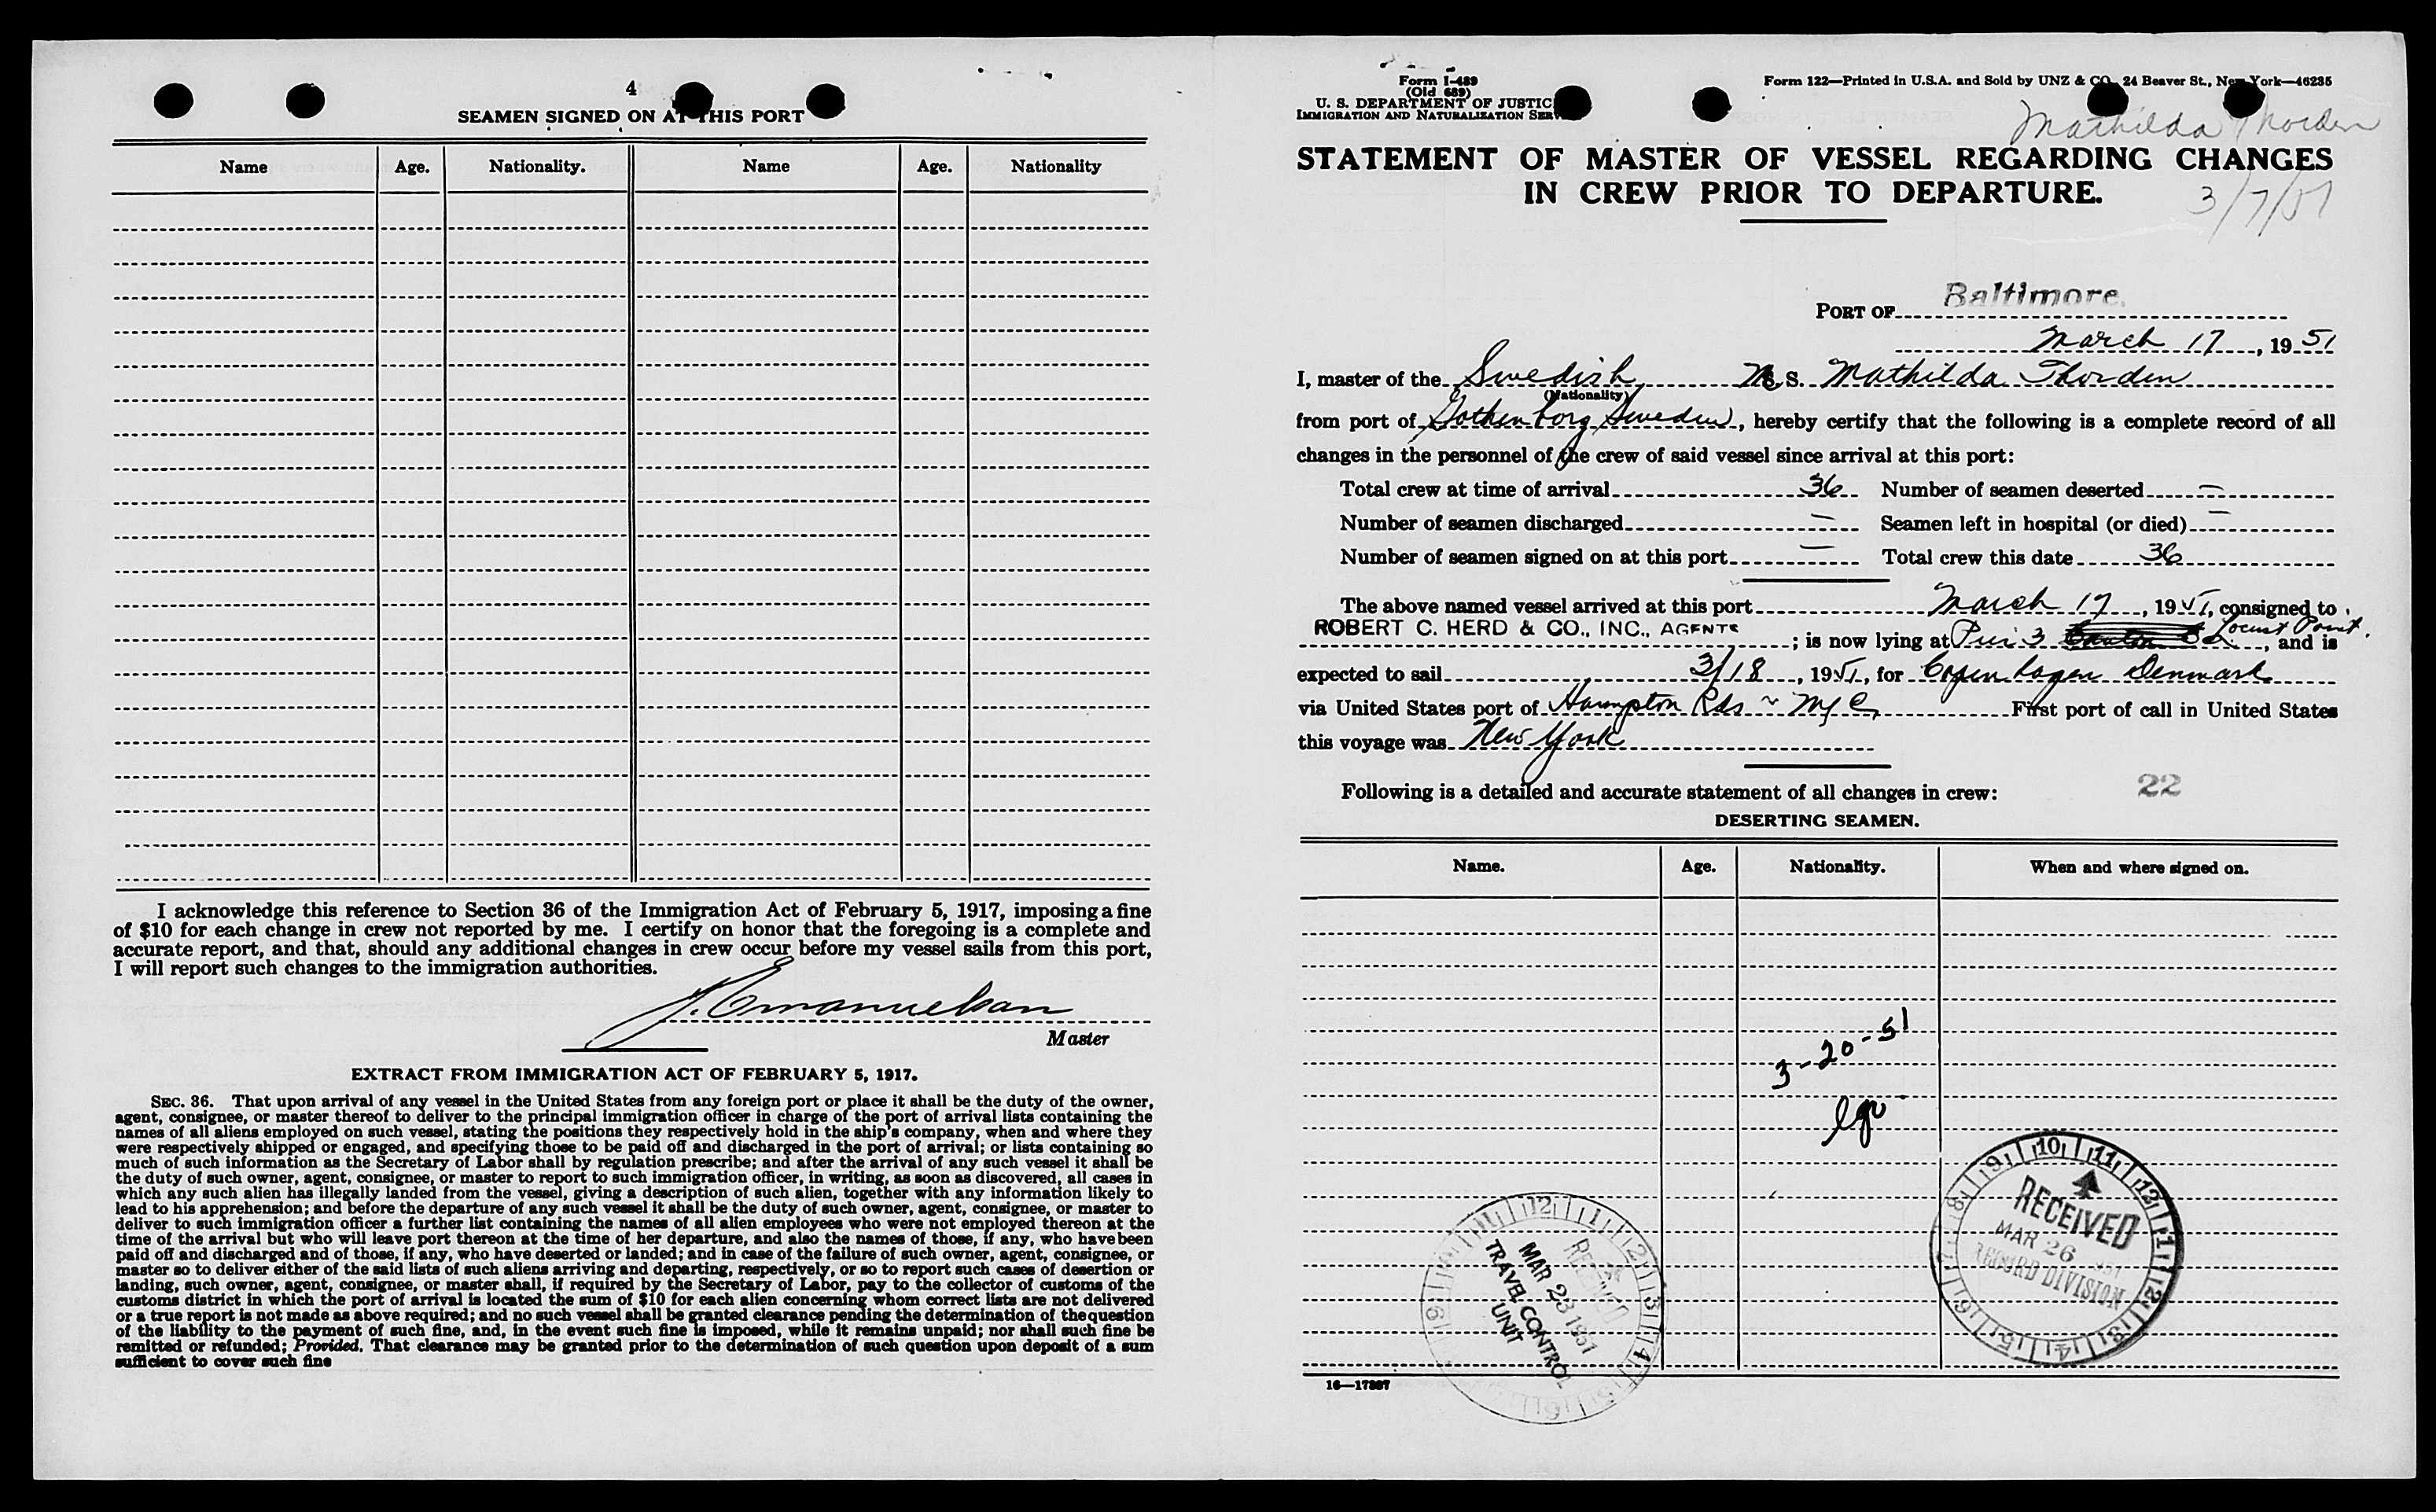 4
SEAMEN SIGNED ON AT THIS PORT
Name Age. Nationality. Name Age. Nationality
I acknowledge this reference to Section 36 of the Immigration Act of February 5, 1917, imposing a fine
of $10 for each change in crew not reported by me. I certify on honor that the foregoing is a complete and
accurate report, and that, should any additional changes in crew occur before my vessel sails from this port,
I will report such changes to the immigration authorities.
J. Emanuelsan
Master
EXTRACT FROM IMMIGRATION ACT OF FEBRUARY 5, 1917.
SEC. 36. That upon arrival of any vessel in the United States from any foreign port or place it shall be the duty of the owner,
agent, consignee, or master thereof to deliver to the principal immigration officer in charge of the port of arrival lists containing the
names of all aliens employed on such vessel, stating the positions they respectively hold in the ship's company, when and where they
were respectively shipped or engaged, and specifying those to be paid off and discharged in the port of arrival; or lists containing so
much of such information as the Secretary of Labor shall by regulation prescribe; and after the arrival of any such vessel it shall be
the duty of such owner, agent, consignee, or master to report to such immigration officer, in writing, as soon as discovered, all cases in
which any such alien has illegally landed from the vessel, giving a description of such alien, together with any information likely to
lead to his apprehension; and before the departure of any such vessel it shall be the duty of such owner, agent, consignee, or master to
deliver to such immigration officer a further list containing the names of all alien employees who were not employed thereon at the
time of the arrival but who will leave port thereon at the time of her departure, and also the names of those, if any, who have been
paid off and discharged and of those, if any, who have deserted or landed; and in case of the failure of such owner, agent, consignee, or
master so to deliver either of the said lists of such aliens arriving and departing, respectively, or so to report such cases of desertion or
landing, such owner, agent, consignee, or master shall, if required by the Secretary of Labor, pay to the collector of customs of the
customs district in which the port of arrival is located the sum of $10 for each alien concerning whom correct lists are not delivered
or a true report is not made as above required; and no such vessel shall be granted clearance pending the determination of the question
of the liability to the payment of such fine, and, in the event such fine is imposed, while it remains unpaid; nor shall such fine be
remitted or refunded; Provided, That clearance may be granted prior to the determination of such question upon deposit of a sum
sufficient to cover such fine
Form I-489
(Old 689)
U. S. DEPARTMENT OF JUSTIC
IMMIGRATION AND NATURALIZATION SER
Form 122—Printed in U.S.A. and Sold by UNZ & CO. 24 Beaver St., New York—46235
Mathilda Thorden
STATEMENT OF MASTER OF VESSEL REGARDING CHANGES
IN CREW PRIOR TO DEPARTURE.
3/7/51
PORT OF Baltimore.
March 17, 19 51
I, master of the Swedish M. S. Mathilda Thorden
(Nationality)
from port of Gothenborg Sweden, hereby certify that the following is a complete record of all
changes in the personnel of the crew of said vessel since arrival at this port:
Total crew at time of arrival 36 Number of seamen deserted —
Number of seamen discharged — Seamen left in hospital (or died) —
Number of seamen signed on at this port — Total crew this date 36
The above named vessel arrived at this port March 17, 19 51, consigned to
ROBERT C. HERD & CO., INC., AGENTS ; is now lying at Pier 3 Locust Point., and is
expected to sail 3/18, 19 51, for Copenhagen Denmark
via United States port of Hampton Rds ~ M/C First port of call in United States
this voyage was New York
Following is a detailed and accurate statement of all changes in crew: 22
DESERTING SEAMEN.
Name. Age. Nationality. When and where signed on.
3-20-51
RECEIVED
MAR 23 1951
TRAVEL CONTROL
UNIT
10 11 12 1 2 3 4 5 6 7 8 9
RECEIVED
MAR 26 1951
RECORD DIVISION
16—17887